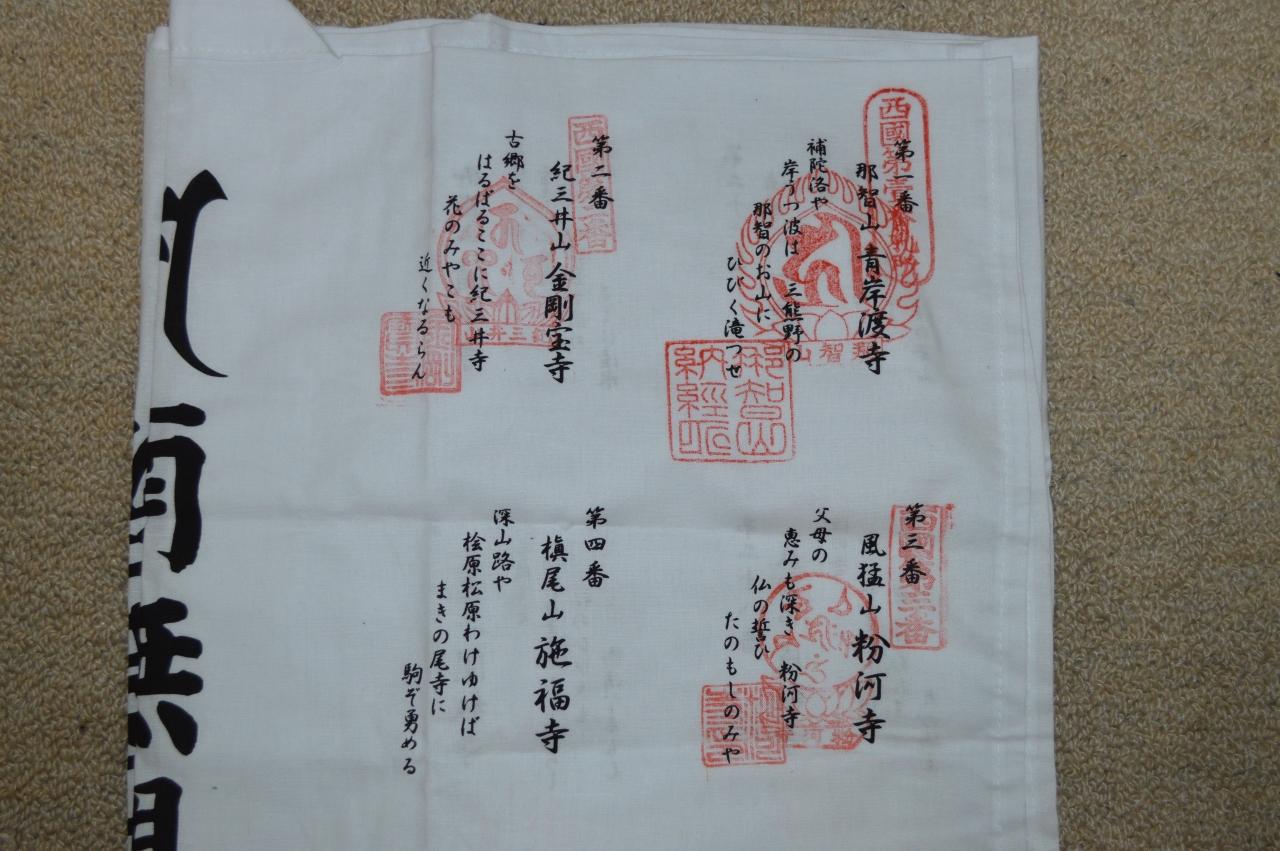 第一番
那智山 青岸渡寺
補陀洛や
岸うつ波は 三熊野の
那智のお山に
ひびく滝つせ
西國第壹番
那智山
納經所
第二番
紀三井山 金剛宝寺
古郷を
はるばるここに紀三井寺
花のみやこも
近くなるらん
第三番
風猛山 粉河寺
父母の
恵みも深き 粉河寺
仏の誓ひ
たのもしのみや
西國第三番
第四番
槇尾山 施福寺
深山路や
桧原松原わけゆけば
まきの尾寺に
駒ぞ勇める
南無